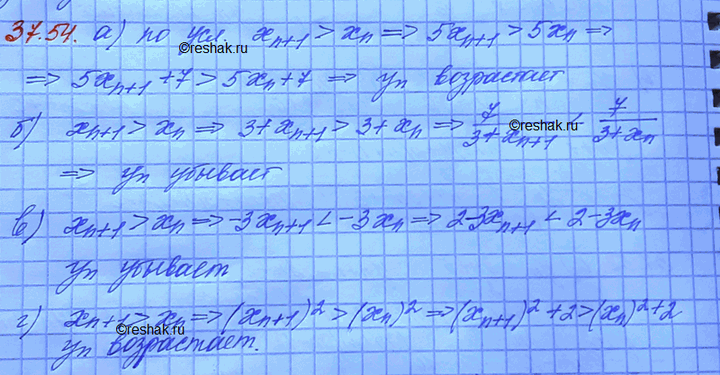 37.54. а) по усл. xₙ₊₁ > xₙ => 5xₙ₊₁ > 5xₙ =>
©reshak.ru
=> 5xₙ₊₁ + 7 > 5xₙ + 7 => yₙ возрастает
б) xₙ₊₁ > xₙ => 3 + xₙ₊₁ > 3 + xₙ => 7/(3 + xₙ₊₁) < 7/(3 + xₙ)
©reshak.ru
=> yₙ убывает
в) xₙ₊₁ > xₙ => -3xₙ₊₁ < -3xₙ => 2-3xₙ₊₁ < 2-3xₙ
yₙ убывает
г) xₙ₊₁ > xₙ => (xₙ₊₁)² > (xₙ)² => (xₙ₊₁)² + 2 > (xₙ)² + 2
©reshak.ru
yₙ возрастает.